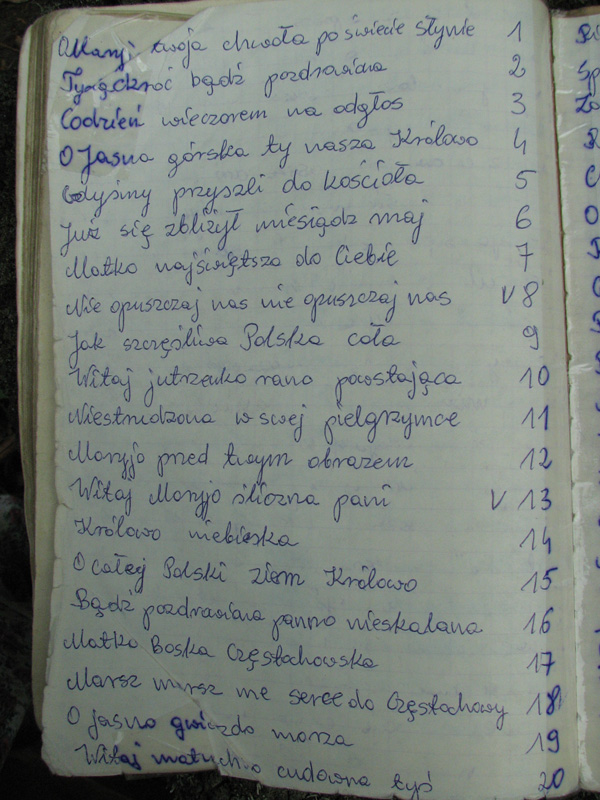 O Maryj twoja chwała po świecie słynie 1
Tysiąckroć bądź pozdrowiona 2
Codzień wieczorem na odgłos 3
O Jasna górska ty nasza Królowo 4
Gdyśmy przyszli do kościoła 5
Już się zbliżył miesiądz maj 6
Matko najświętsza do Ciebie 7
Nie opuszczaj nas nie opuszczaj nas V 8
Jak szczęśliwa Polska cała 9
Witaj jutrzenko rano powstająca 10
Niestrudzona w swej pielgrzymce 11
Maryjo pred twym obrazem 12
Witaj Maryjo śliczna pani V 13
Królowo niebieska 14
O całej Polski ziem Królowo 15
Bądź pozdrowiona panno nieskalana 16
Matko Boska Częstochowska 17
Marsz marsz me serce do Częstochowy 18
O jasna gwiazdo morza 19
Witaj matuchno cudowna tyś 20